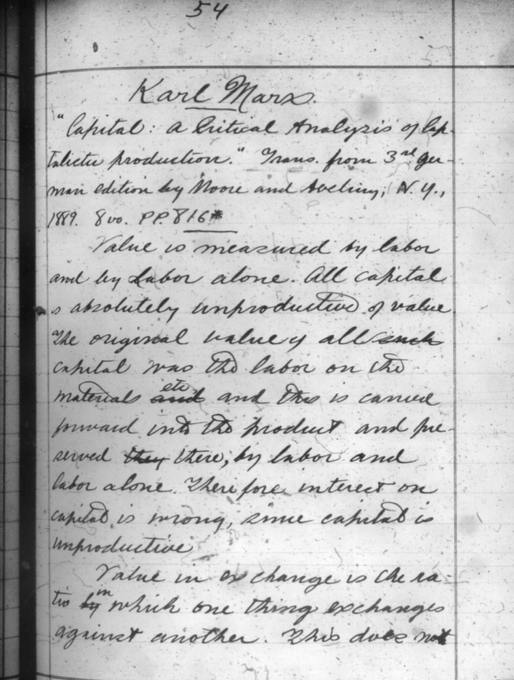 54
Karl Marx.
"Capital: A Critical Analysis of Cap-
talictic production." Trans. from 3rd Ger-
man edition by Moore and Aveling, N.Y.,
1889. 8vo. PP. 816
Value is measured by labor
and by Labor alone. All capital
is absolutely unproductive of value
The original value of all such
capital was the labor on the
materials and etc and this is carried
forward into the product and pre-
served they there, by labor and
labor alone. Therefore interest on
capital is wrong, since capital is
unproductive
Value in exchange is the ra-
tio by in which one thing exchanges
against another. This does not